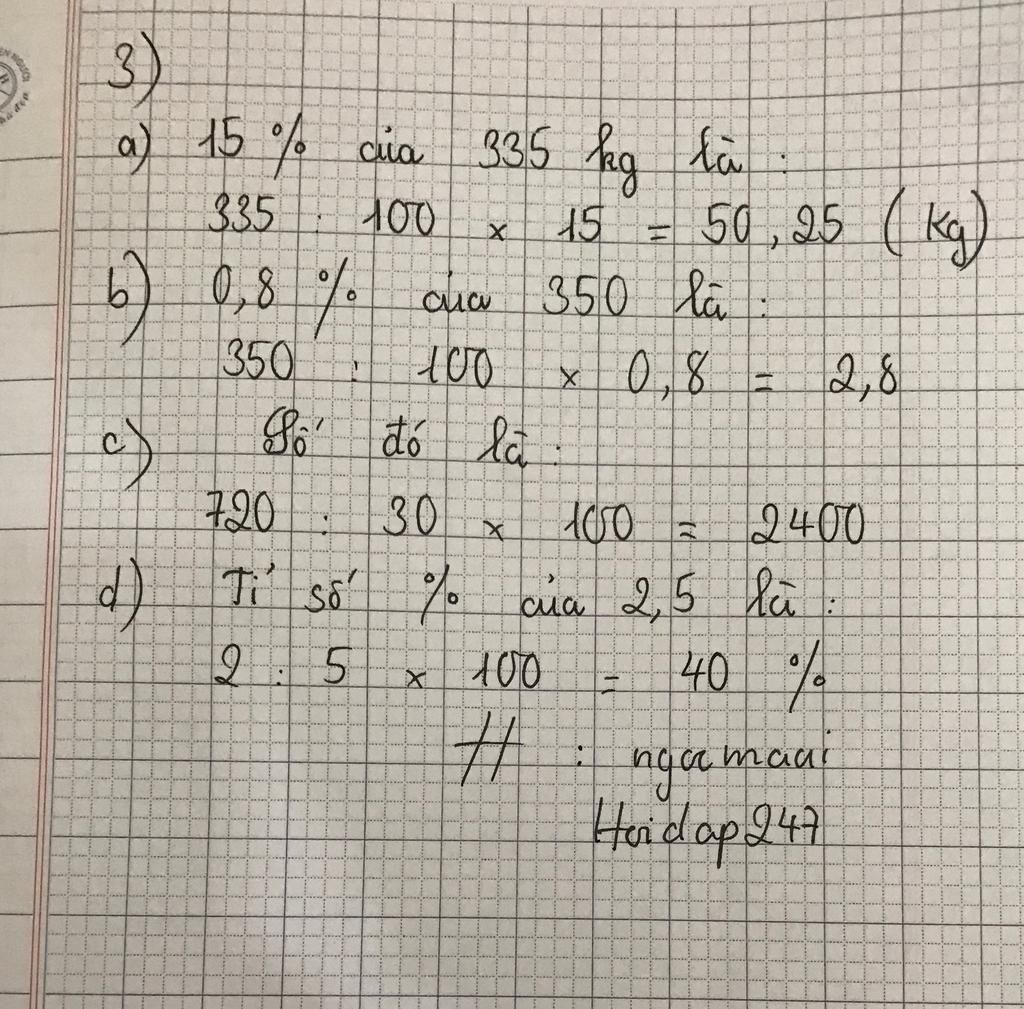 3)
a) 15 % của 335 kg là :
335 : 100 x 15 = 50,25 (kg)
b) 0,8 % của 350 là :
350 : 100 x 0,8 = 2,8
c) Số đó là :
720 : 30 x 100 = 2400
d) Tỉ số % của 2,5 là :
2 : 5 x 100 = 40 %
# : ngocmaai
Hoidap247